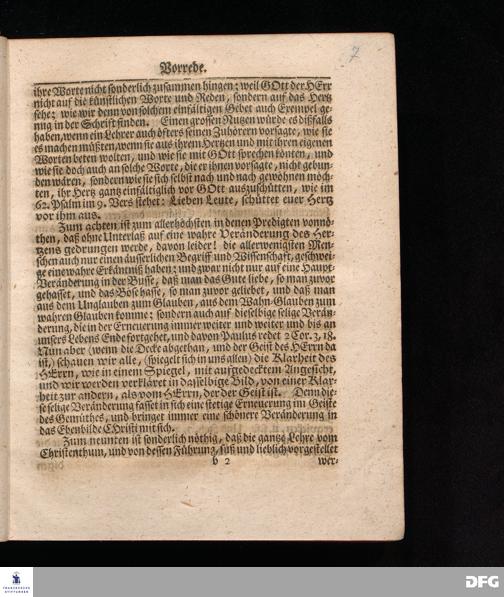 7
Vorrede.
ihre Worte nicht sonderlich zusammen hingen: weil GOtt der HErr
nicht auf die künstlichen Worte und Reden, sondern auf das Hertz
sehe; wie wir denn von solchem einfältigen Gebet auch Exempel ge-
nug in der Schrift finden. Einen grossen Nutzen würde es dißfalls
haben, wenn ein Lehrer auch öfters seinen Zuhörern vorsagte, wie sie
es machen müßten, wenn sie aus ihrem Hertzen und mit ihren eigenen
Worten beten wolten, und wie sie mit GOtt sprechen könten, und
wie sie doch auch an solche Worte, die er ihnen vorsagte, nicht gebun-
den wären, sondern wie sie sich selbst nach und nach gewöhnen möch-
ten, ihr Hertz gantz einfältiglich vor GOtt auszuschütten, wie im
62. Psalm im 9. Vers stehet: Lieben Leute, schüttet euer Hertz
vor ihm aus.
Zum achten ist zum allerhöchsten in denen Predigten vonnö-
then, daß ohne Unterlaß auf eine wahre Veränderung des Her-
tzens gedrungen werde, davon leider! die allerwenigsten Men-
schen auch nur einen äusserlichen Begriff und Wissenschaft, geschwei-
ge eine wahre Erkäntniß haben; und zwar nicht nur auf eine Haupt-
Veränderung in der Busse, daß man das Gute liebe, so man zuvor
gehasset, und das Böse hasse, so man zuvor geliebet, und daß man
aus dem Unglauben zum Glauben, aus dem Wahn-Glauben zum
wahren Glauben komme; sondern auch auf dieselbige selige Verän-
derung, die in der Erneuerung immer weiter und weiter und bis an
unsers Lebens Ende fortgehet, und davon Paulus redet 2 Cor. 3, 18.
Nun aber (wenn die Decke abgethan, und der Geist des HErrn da
ist,) schauen wir alle, (spiegelt sich in uns allen) die Klarheit des
HErrn, wie in einem Spiegel, mit aufgedecktem Angesicht,
und wir werden verkläret in dasselbige Bild, von einer Klar-
heit zur andern, als vom HErrn, der der Geist ist. Denn die-
se selige Veränderung fasset in sich eine stetige Erneuerung im Geiste
des Gemüthes, und bringet immer eine schönere Veränderung in
das Ebenbilde CHristi mit sich.
Zum neunten ist sonderlich nöthig, daß die gantze Lehre vom
Christenthum, und von dessen Führung, süß und lieblich vorgestellet
b 2
wer-
FRANCKESCHE
STIFTUNGEN
DFG